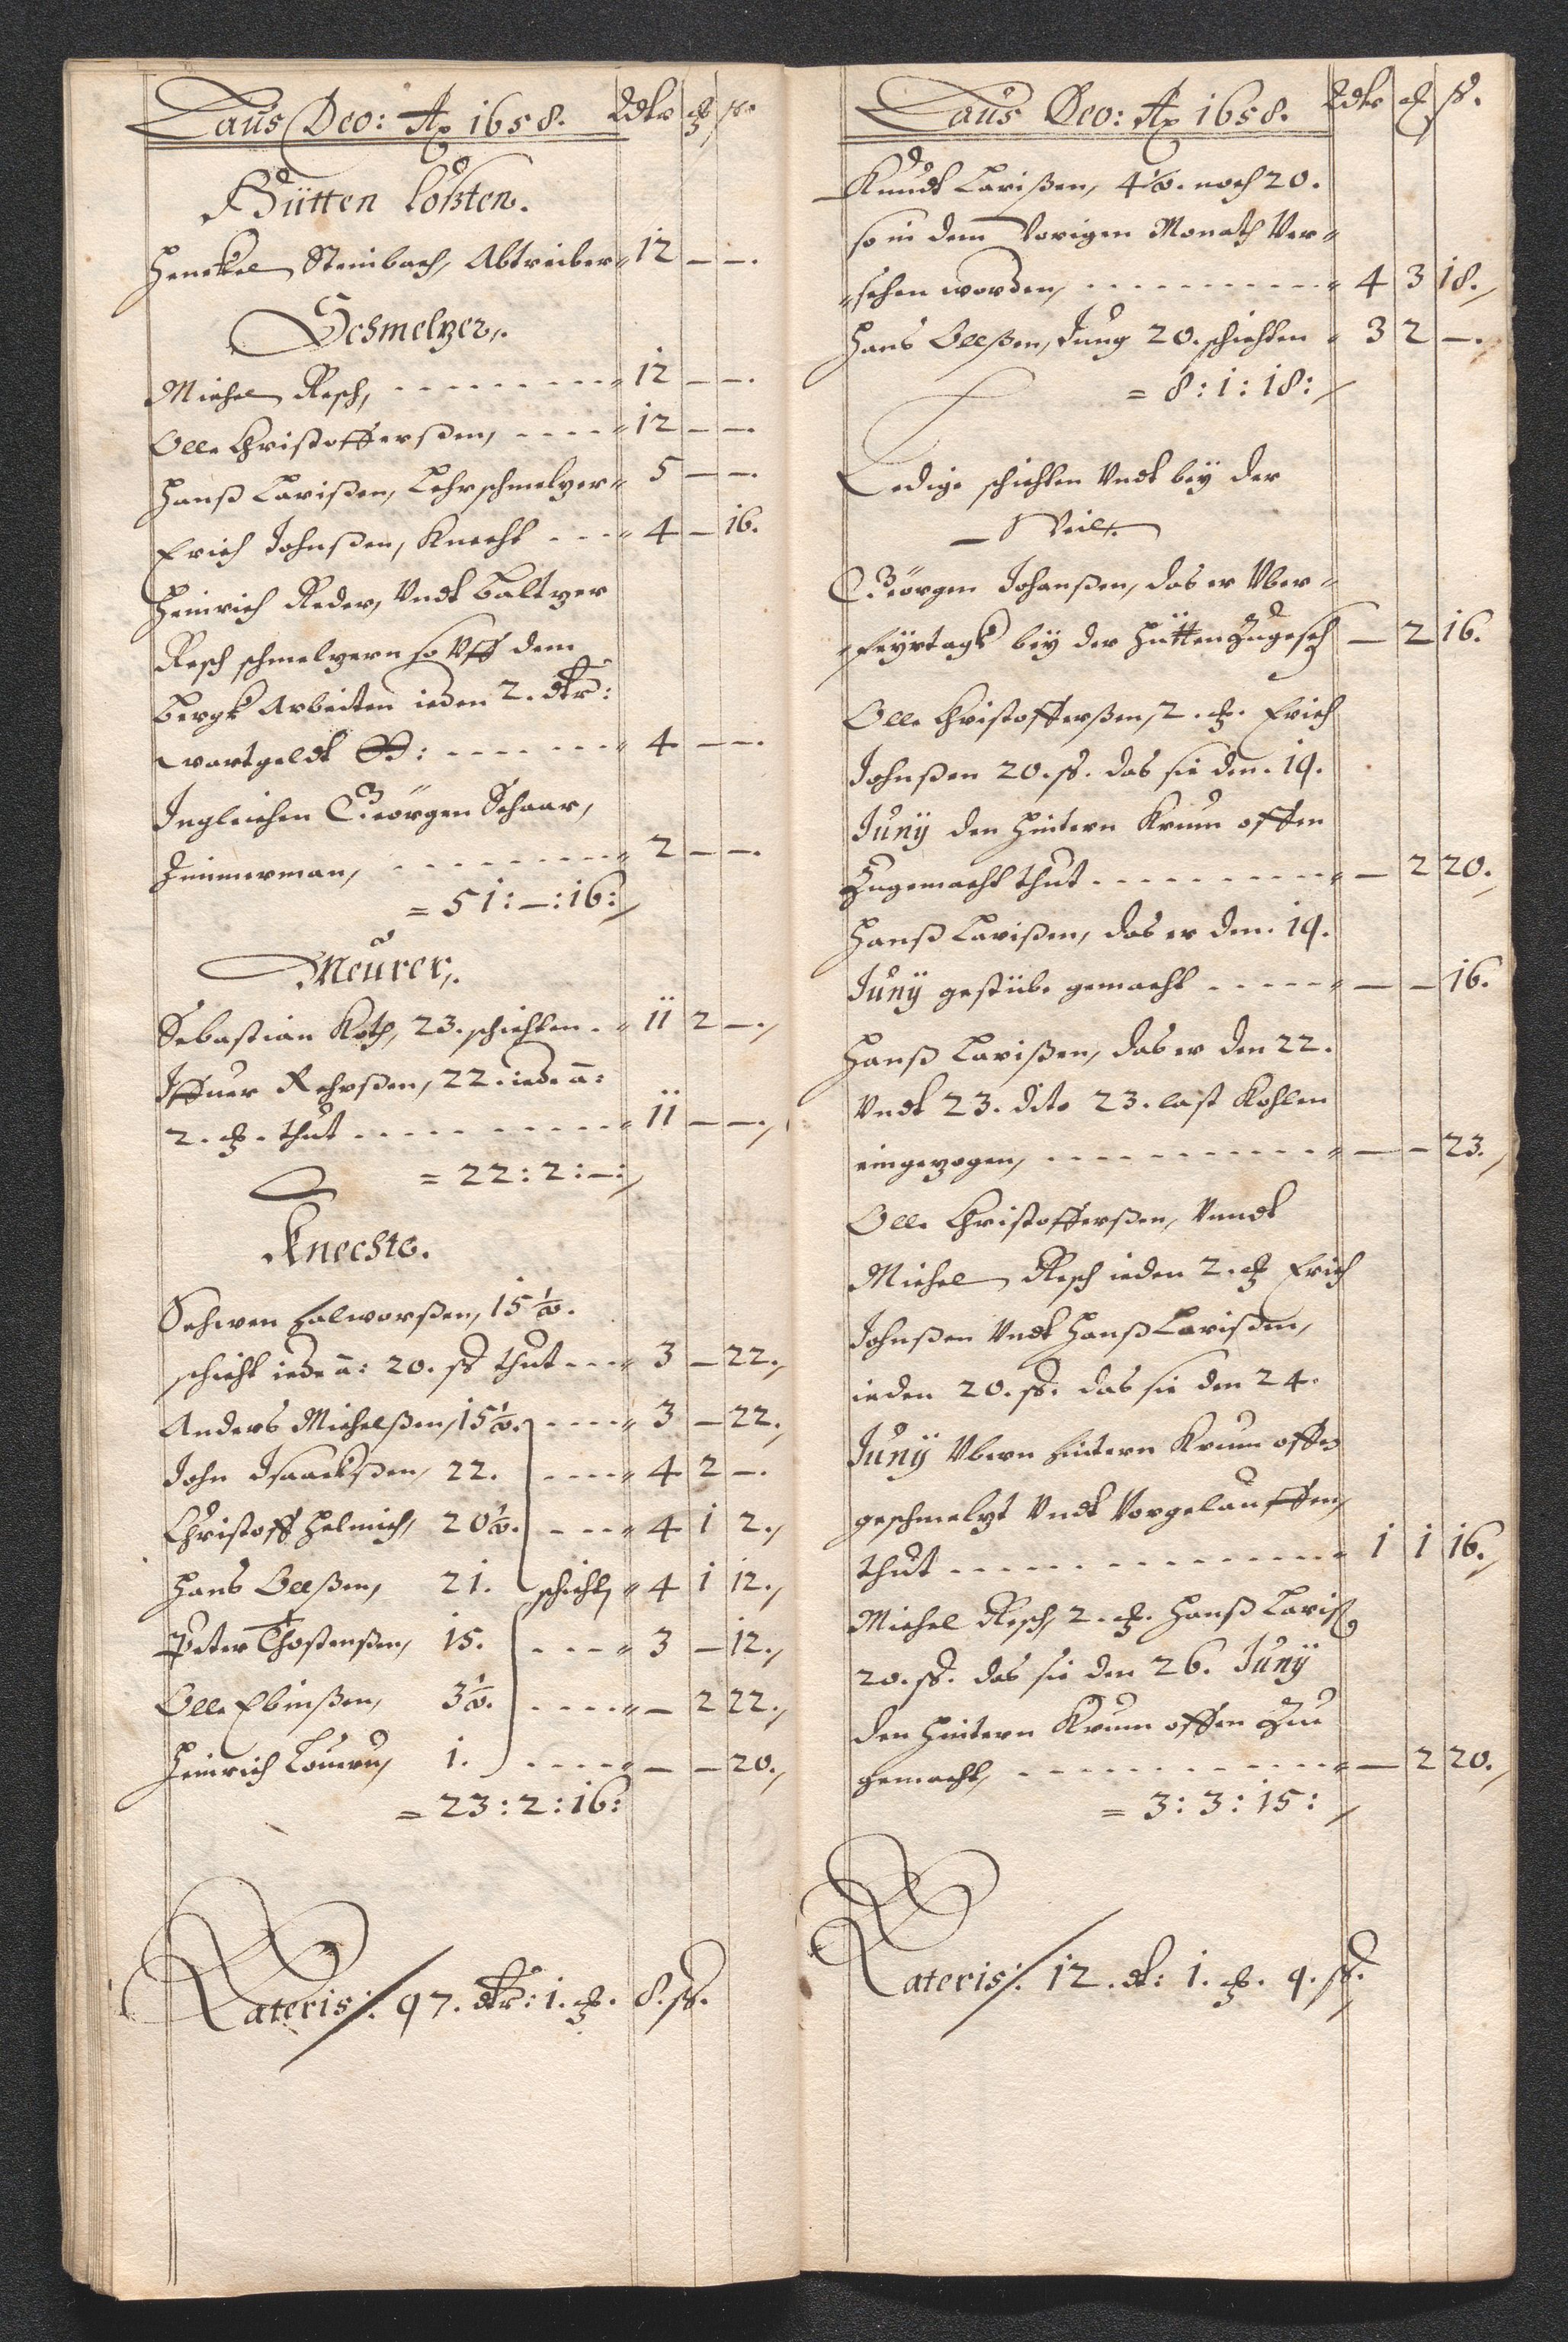 Laus Deo: Ao 1658. Rdlr
Hütten Costen.
Henckel Steinbach, Abtreiber 12 — —.
Schmelzer.
Michel Resch, - - - - 12 — —.
Olle Christoffersßen, - - - - 12 — —.
Hanß Larißen, Lehrschmelzer 5 — —.
Erich Johnßen, Knecht - - - 4 — 16.
Heinrich Reder, Undt Baltzer
Resch schmelzern so Uff dem
Bergk Arbeiten ieden 2. dlr:
wartgeldt - - - - 4 — —.
Ingleichen Geörgen Schaar,
Zimmerman, - - - - 2 — —.
= 51: — :16:
Meurer.
Sebastian Koth, 23. schichten - 11 2 —.
Rehrßen, 22. iede a:
2. thut - - - - 11 — —.
= 22: 2: —:
Knechte.
Schwen Halworßen, 15 ½.
schicht iede a: 20. ß thut - - - 3 — 22.
Anders Michelßen, 15 ½. - - - - 3 — 22.
John Isaackßen, 22. - - - - 4 2 —.
Christoff Helmich, 20 ½. - - - 4 1 2.
Hans Olßen, 21. schicht 4 1 12.
Peter Thostenßen, 15. - - - - 3 — 12.
Olle Ebinßen, 3 ½. - - - - — 2 22.
Heinrich 1. - - - - — — 20.
= 23: 2: 16:
Lateris/: 97. dlr: 1. 8. ß.
Laus Deo: Ao 1658. Rdlr ß.
Knudt Larißen, 4 ½. noch 20.
so in dem Vorigen Monath Ver-
sehen worden, - - - - 4 3 18.
Hans Olßen, Jung 20. schichten 3 2 —.
= 8: 1: 18:
Ledige schichten Undt bey der
Weil.
Geörgen Johanßen, das er Uber
feyrtags bey der Hütten Zugeseh — 2 16.
Olle Christofferßen, 2. Erich
Johnßen 20. ß. das sie den. 19.
Juny den Hintern Krum offen
Zugemacht thut - - - - — 2 20.
Hanß Larißen, das er den. 19.
Juny gestübe gemacht - - - - — — 16.
Hanß Larißen, das er den 22.
Undt 23. dito 23. last Kohlen
eingezogen, - - - - — — 23.
Olle Christofferßen, Unndt
Michel Resch ieden 2. Erich
Johnßen Undt Hanß Larißen,
ieden 20. ß. das sie den 24.
Juny Ubern Hintern Krum offen
geschmelzt Undt Vorgelauffen,
thut - - - - 1 1 16.
Michel Resch, 2. Hanß Lariß
20. ß. das sie den 26. Juny
den Hintern Krum offen Zu
gemacht, - - - - — 2 20.
= 3: 3: 15:
Lateris/: 12. dl: 1. 9. ß.